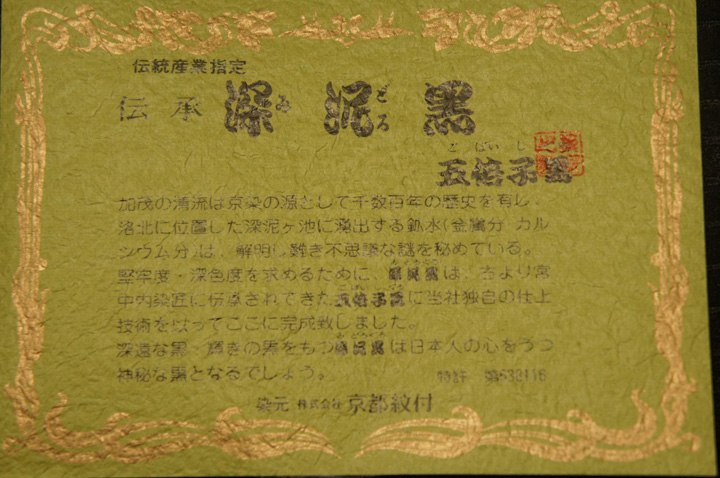 伝統産業指定
伝承 深泥黒
み どろ
ごばいし
五倍子黒
加茂の清流は京染の源として千数百年の歴史を有し、
洛北に位置した深泥ヶ池に湧出する鉱水(金属分・カル
シウム分)は、解明し難き不思議な謎を秘めている。
堅牢度・深色度を求めるために、深泥黒は、古より宮
中内染匠に伝承されてきた五倍子黒に当社独自の仕上
技術を以ってここに完成致しました。
深遠な黒・輝きの黒をもつ深泥黒は日本人の心をうつ
神秘な黒となるでしょう。 特許 第530116
染元 株式会社 京都紋付